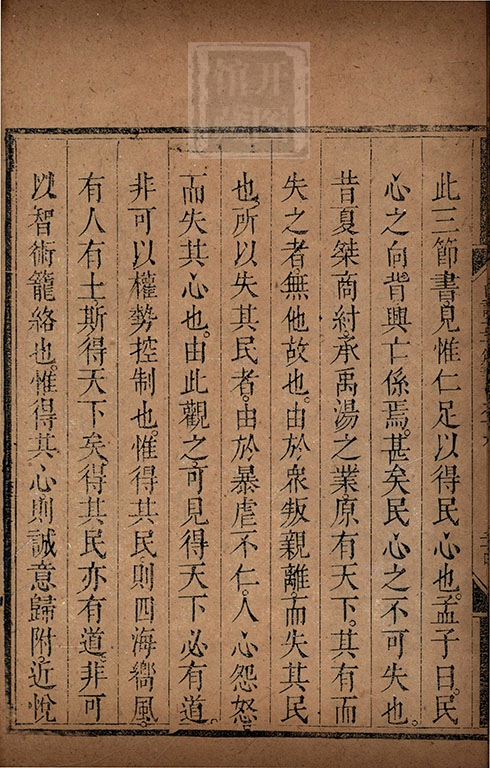 此三節書見惟仁足以得民心也。孟子曰。民
心之向背興亡係焉。甚矣民心之不可失也。
昔夏桀商紂。承禹湯之業。原有天下。其有而
失之者。無他故也。由於衆叛親離。而失其民
也。所以失其民者。由於暴虐不仁。人心怨怒
而失其心也。由此觀之。可見得天下必有道。
非可以權勢控制也。惟得其民則四海嚮風。
有人有土。斯得天下矣。得其民亦有道。非可
以智術籠絡也。惟得其心。則誠意歸附。近悅